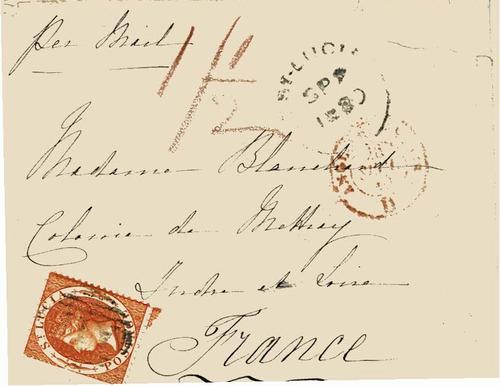 per Mail
1/2
ST. LUCIA
SP 4
1880
Madame Blanchard
Colonie de Mettray
Indre et Loire
ST LUCIA
France